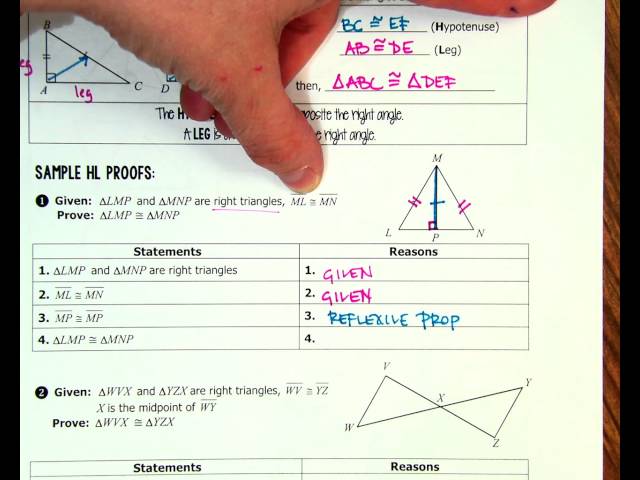 B
BC ≅ EF (Hypotenuse)
AB ≅ DE (Leg)
A leg C D
then, △ABC ≅ △DEF
The posite the right angle.
A LEG is the right angle.
SAMPLE HL PROOFS:
1 Given: △LMP and △MNP are right triangles, ML ≅ MN
Prove: △LMP ≅ △MNP
M
L P N
Statements Reasons
1. △LMP and △MNP are right triangles 1. GIVEN
2. ML ≅ MN 2. GIVEN
3. MP ≅ MP 3. REFLEXIVE PROP
4. △LMP ≅ △MNP 4.
2 Given: △WVX and △YZX are right triangles, WV ≅ YZ
X is the midpoint of WY
Prove: △WVX ≅ △YZX
V
Y
X
W
Z
Statements Reasons